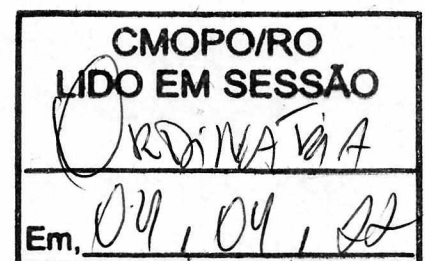 CMOPO/RO
LIDO EM SESSÃO
ORDINÁRIA
Em, 04, 04, 22